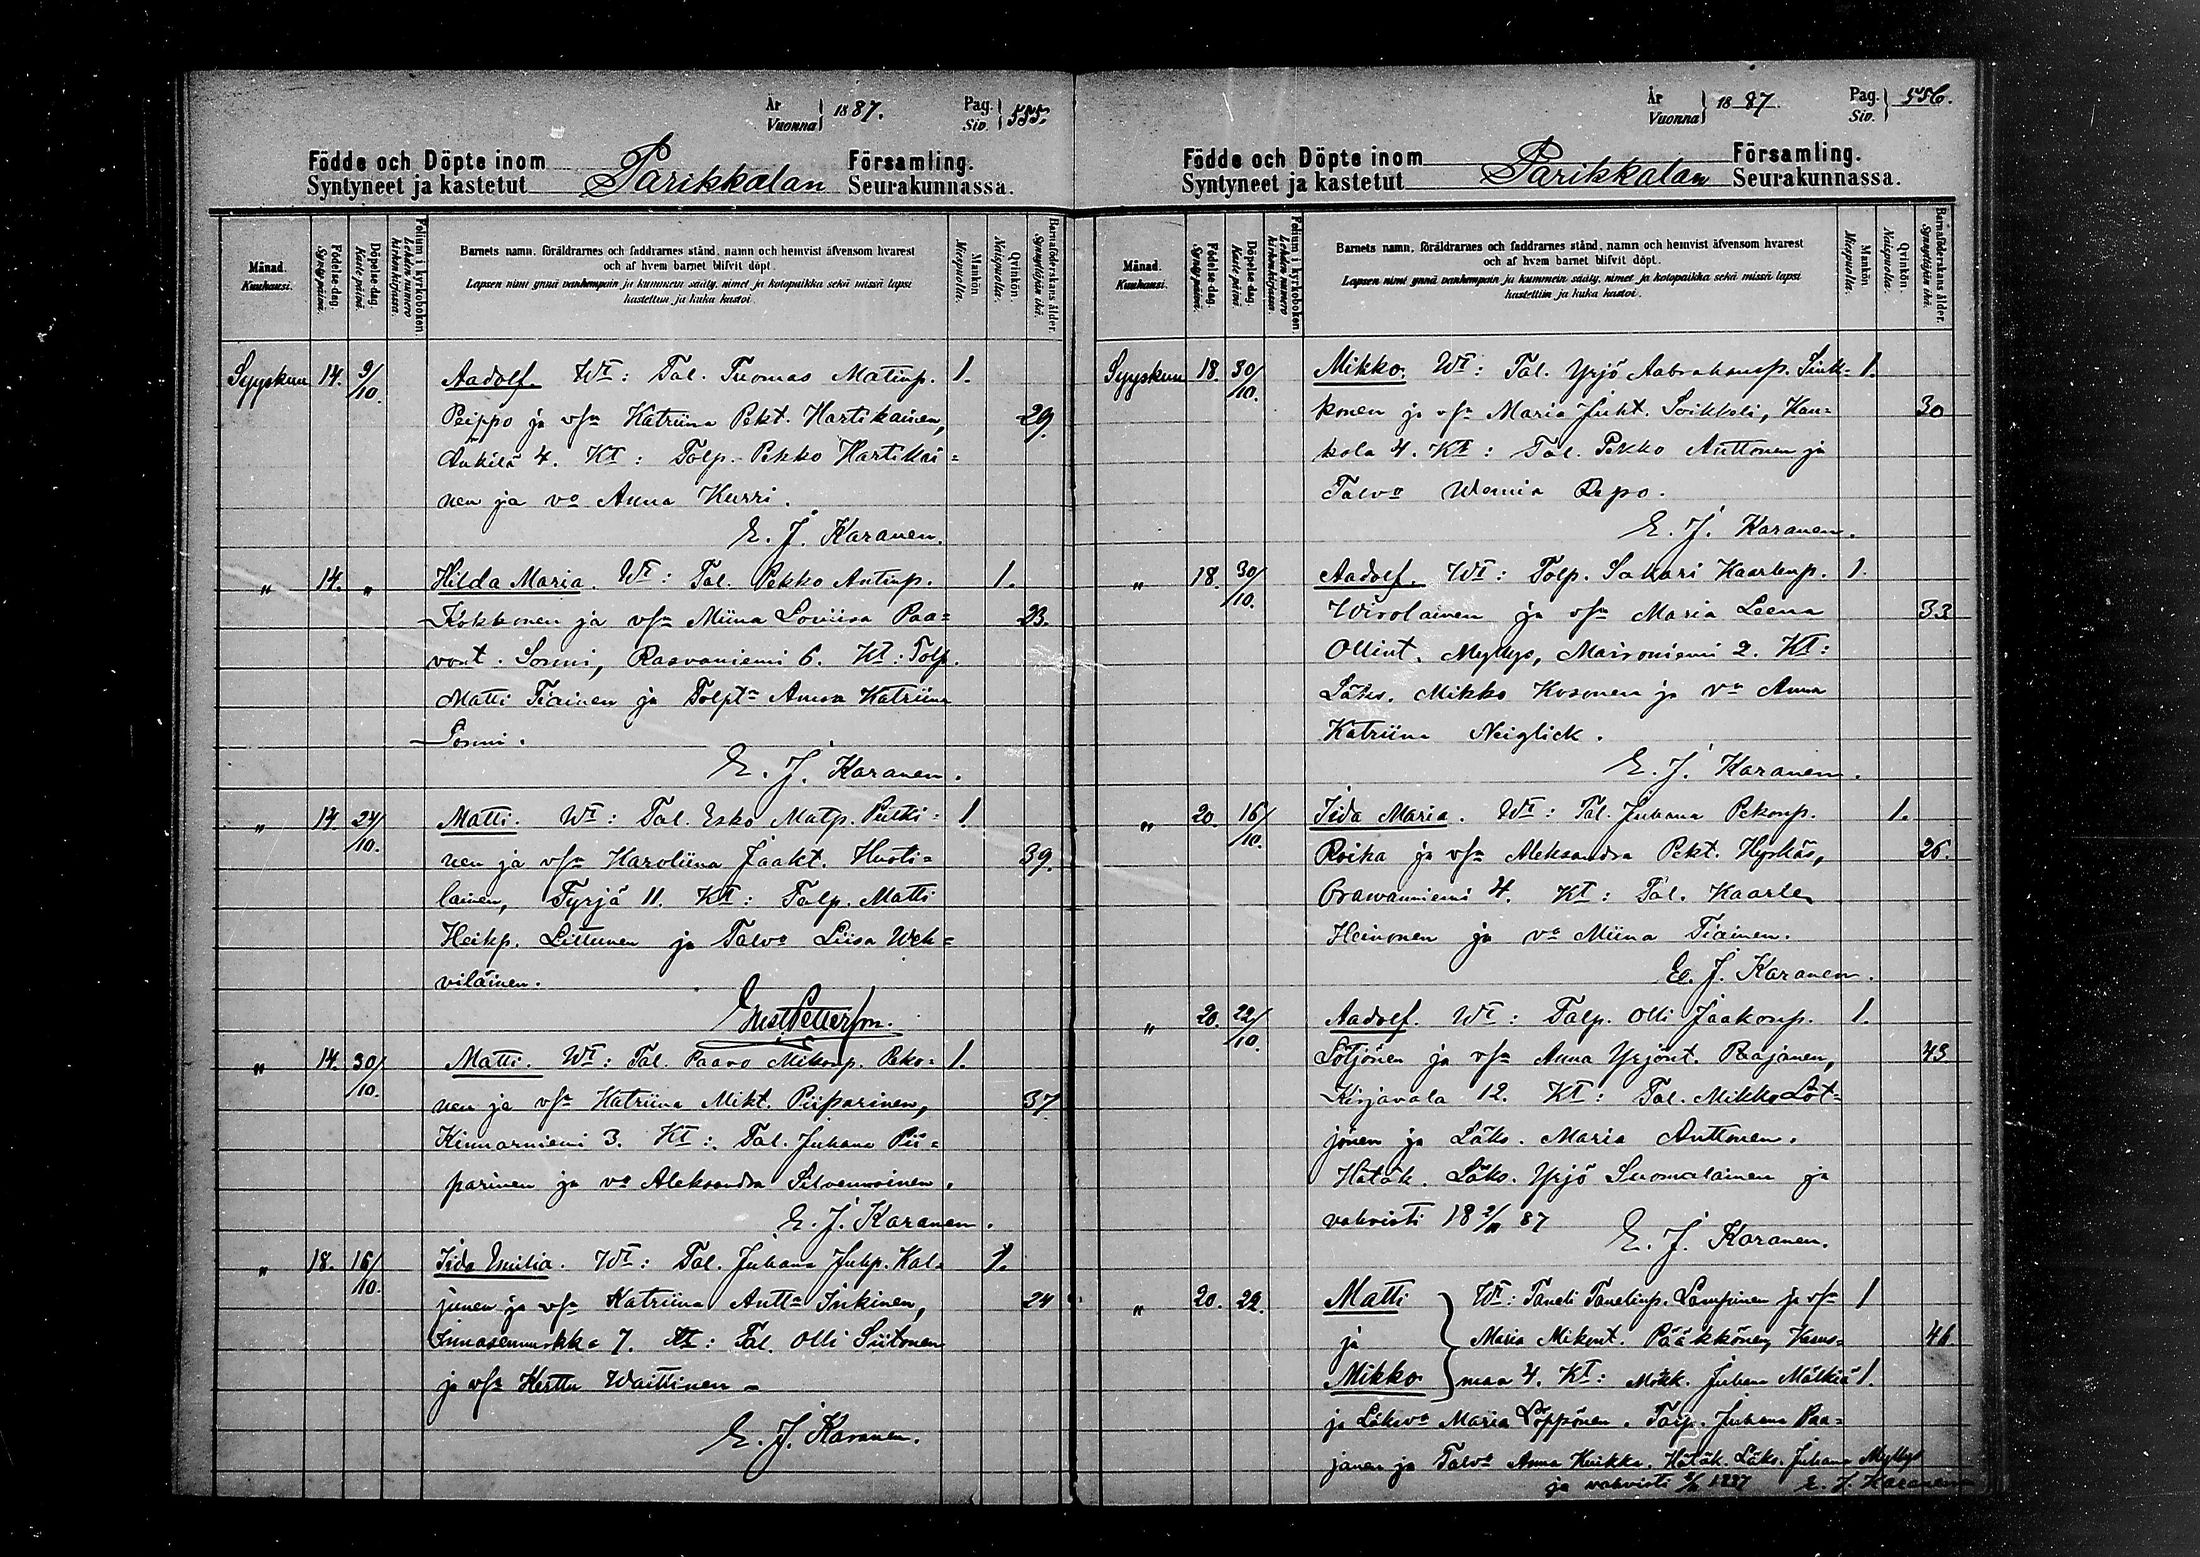 År Vuonna } 1887. Pag. Siv. } 555.
Födde och Döpte inom Församling.
Syntyneet ja kastetut Parikkalan Seurakunnassa.
Månad. Kuukausi.
Födelse-dag. Syntypäivä.
Döpelse-dag. Kaste päivä.
Folium i kyrkoboken. Lehden numero kirkonkirjassa.
Barnets namn, föräldrarnes och faddrarnes stånd, namn och hemvist äfvensom hvarest
och af hvem barnet blifvit döpt.
Lapsen nimi ynnä vanhempain ja kummein sääty, nimet ja kotopaikka sekä missä lapsi
kastettiin ja kuka kastoi.
Mankön. Miespuolia.
Qvinkön. Naispuolia.
Barnaföderskans ålder. Synnyttäjän ikä.
Syyskuu 14. 9/10. Aadolf. Wt: Tal. Tuomas Matinp. 1.
Peippo ja vsa Katriina Pekt. Hartikainen, 29.
Ankilä 4. Kt: Tolp. Pekko Hartikai=
nen ja vo Anna Kurri.
E. J. Karanen.
„ 14. „ Hilda Maria. Wt: Tal. Pekko Antinp. 1.
Kokkonen ja vsa Miina Loviisa Paa= 23.
vont. Sormi, Rasvaniemi 6. Kt: Tolp.
Matti Tiainen ja Tolpta Anna Katriina
Sormi.
E. J. Karanen.
„ 14. 24/10. Matti. Wt: Tal. Esko Matp. Putki= 1.
nen ja vsa Karoliina Jaakt. Huoti= 39.
lainen, Tyrjä 11. Kt: Talp. Matti
Heikp. Littunen ja Talvo Liisa Weh=
viläinen.
„ 14. 30/10. Matti. Wt: Tal. Paavo Mikonp. Peko= 1.
nen ja vsa Katriina Mikt. Piiparinen, 37
Kinnarniemi 3. Kt: Tal. Juhana Pii=
parinen ja vo Aleksandra Silvennoinen.
E. J. Karanen.
„ 18. 16/10. Iida Emilia. Wt: Tal. Juhana Juhp. Kal= 1.
junen ja vsa Katriina Antta Inkinen, 24
Innasennurkka 7. Kt: Tal. Olli Siitonen
ja vsa Kerttu Waittinen –
E. J. Karanen.
År Vuonna } 1887. Pag. Siv. } 556.
Födde och Döpte inom Församling.
Syntyneet ja kastetut Parikkalan Seurakunnassa.
Månad. Kuukausi.
Födelse-dag. Syntypäivä.
Döpelse-dag. Kaste päivä.
Folium i kyrkoboken. Lehden numero kirkonkirjassa.
Barnets namn, föräldrarnes och faddrarnes stånd, namn och hemvist äfvensom hvarest
och af hvem barnet blifvit döpt.
Lapsen nimi ynnä vanhempain ja kummein sääty, nimet ja kotopaikka sekä missä lapsi
kastettiin ja kuka kastoi.
Mankön. Miespuolia.
Qvinkön. Naispuolia.
Barnaföderskans ålder. Synnyttäjän ikä.
Syyskuu 18. 30/10. Mikko. Wt: Tal. Yrjö Aabrahamsp. Sink= 1.
konen ja vsa Maria Juht. Soikkeli, Kau= 30
kola 4. Kt: Tal. Pekko Anttonen ja
Talvo Repo.
E. J. Karanen.
„ 18. 30/10. Aadolf. Wt: Tolp. Sakari Kaarlenp. 1.
Wirolainen ja vsa Maria Leena 33
Ollint. Myllys, Moironiemi 2. Kt:
Läks. Mikko Kosonen ja vo Anna
Katriina Neiglick.
E. J. Karanen.
„ 20. 16/10. Iida Maria. Wt: Tal. Juhana Pekonp. 1.
Roika ja vsa Aleksandra Pekt. Hyrkäs, 26.
Orawaniemi 4. Kt: Tal. Kaarle
Heinonen ja vo Miina Tiainen.
E. J. Karanen.
„ 20. 22/10. Aadolf. Wt: Talp. Olli Jaakonp. 1.
Lötjönen ja vsa Anna Yrjönt. Raajanen, 43
Kirjavala 12. Kt: Tal. Mikko Löt=
jönen ja Läks. Maria Anttonen.
Hätäk. Läks. Yrjö Suomalainen ja
vahvisti 18 2/11 87
E. J. Karanen.
„ 20. 22. Matti Wt: Taneli Tanelinp. Lampinen ja vsa 1
ja Maria Mikont. Pääkkönen, Kans= 46.
Mikko. maa 4. Kt: Mökk. Juhana Mätkiä 1.
ja Läksvo Maria Loppönen. Talp. Juhana Paa=
janen ja Talvo Anna Kuikka. Hätäk. Läks. Juhana Myllys
ja vahvisti 1887 E. J. Karanen